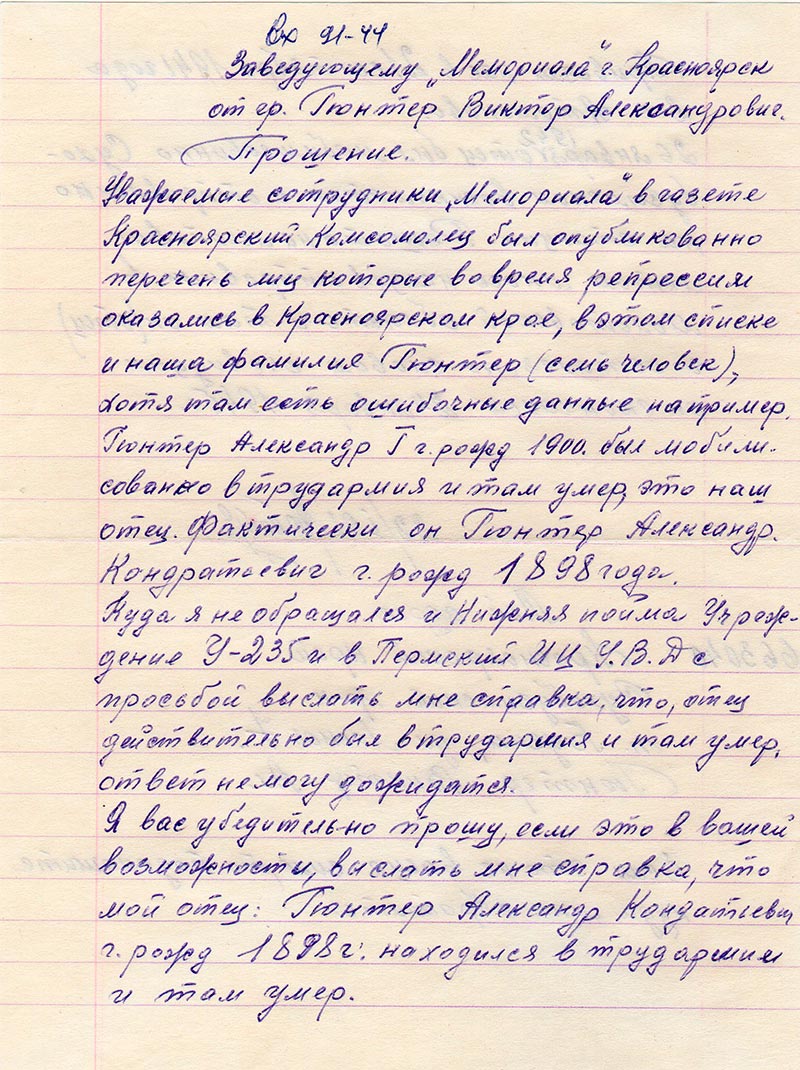 Вх 91-44
Заведующему „Мемориала" г. Красноярск
от гр. Гюнтер Виктор Александрович.
Прошение.
Уважаемые сотрудники „Мемориала" в газете
Красноярский Комсомолец был опубликованно
перечень лиц которые во время репрессии
оказались в Красноярском крае, в этом списке
и наша фамилия Гюнтер (семь человек),
хотя там есть ошибочные данные например.
Гюнтер Александр Г г. рожд 1900. был мобили-
сованно в трудармия и там умер, это наш
отец. Фактически он Гюнтер Александр.
Кондратьевич г. рожд 1898 года.
Куда я не обращался и Нижняя пойма Учреж-
дение У-235 и в Пермский ИЦ У.В.Д с
просьбой выслать мне справка, что, отец
действительно был в трудармия и там умер,
ответ немогу дожидатся.
Я вас убедительно прошу, если это в вашей
возможности, выслать мне справка, что
мой отец: Гюнтер Александр Кондатьевич
г. рожд 1898 г. находился в трудармии
и там умер.